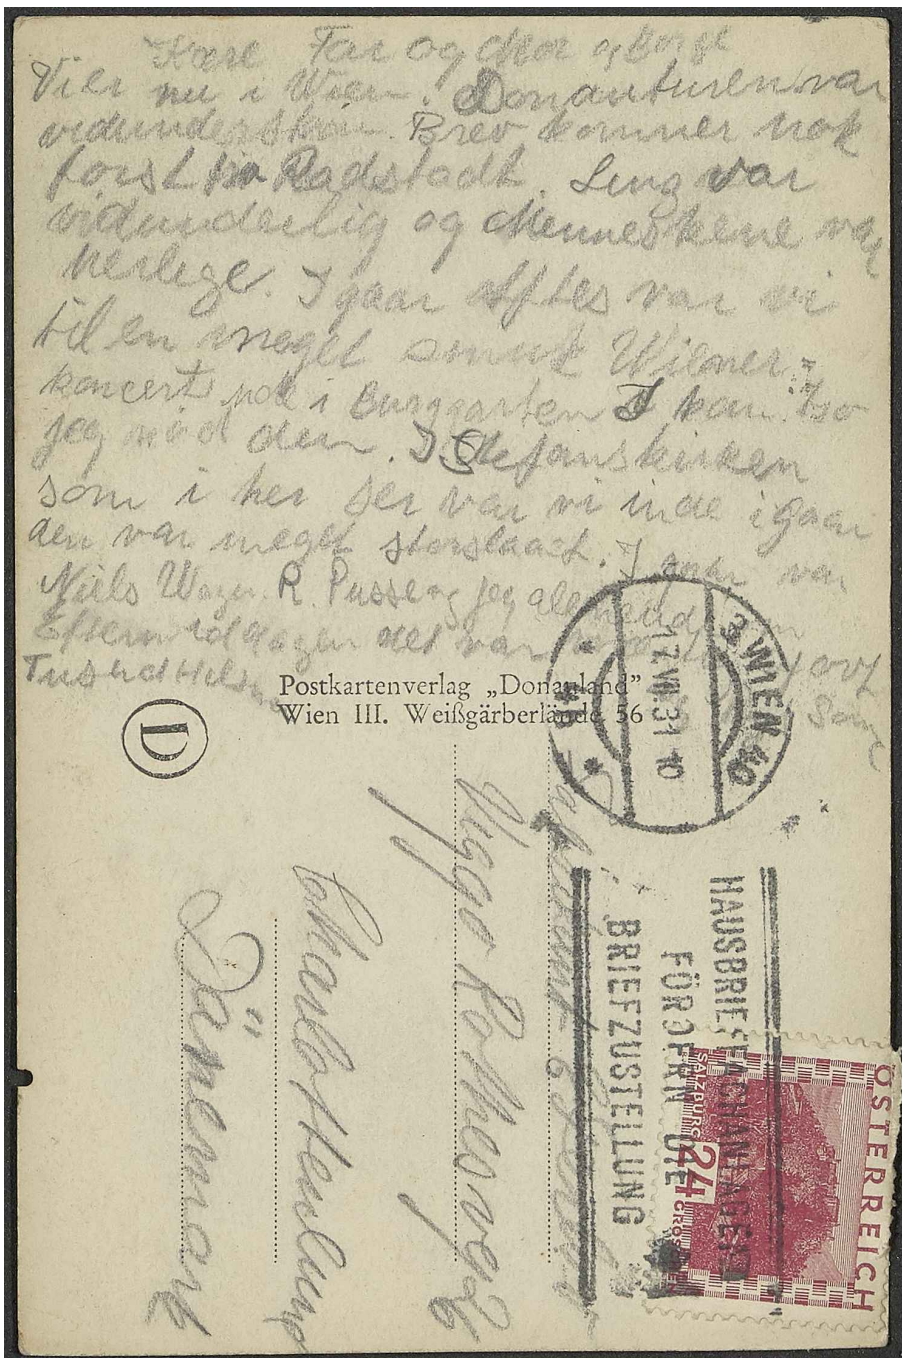 Kære Far og Mor og Borge
Vi er nu i Wien. Donauturen var
vidunderskøn. Brev kommer nok
först fra Radstadt. Linz var
vidunderlig og Menneskene var
herlige. I gaar Aftes var vi
til en meget smuk Wiener-
koncert ude i Burggarten I kan tro
jeg nød den. I Stefanskirken
som i her ser var vi inde igaar
den var meget storslaaet. I gaar var
Niels R. Pusse og jeg alene
Eftermiddagen det var
Tusind Hilsn
Postkartenverlag „Donauland“
Wien III. Weißgärberlände 56
D
3 WIEN 40
17.VII.31 10
HAUSBRIEFFACHANLAGEN
FÖRDERN DIE
BRIEFZUSTELLUNG
ÖSTERREICH
SALZBURG 24 GROSCHEN
Viggo Rothesvej 2
Charlottenlund
Dänemark